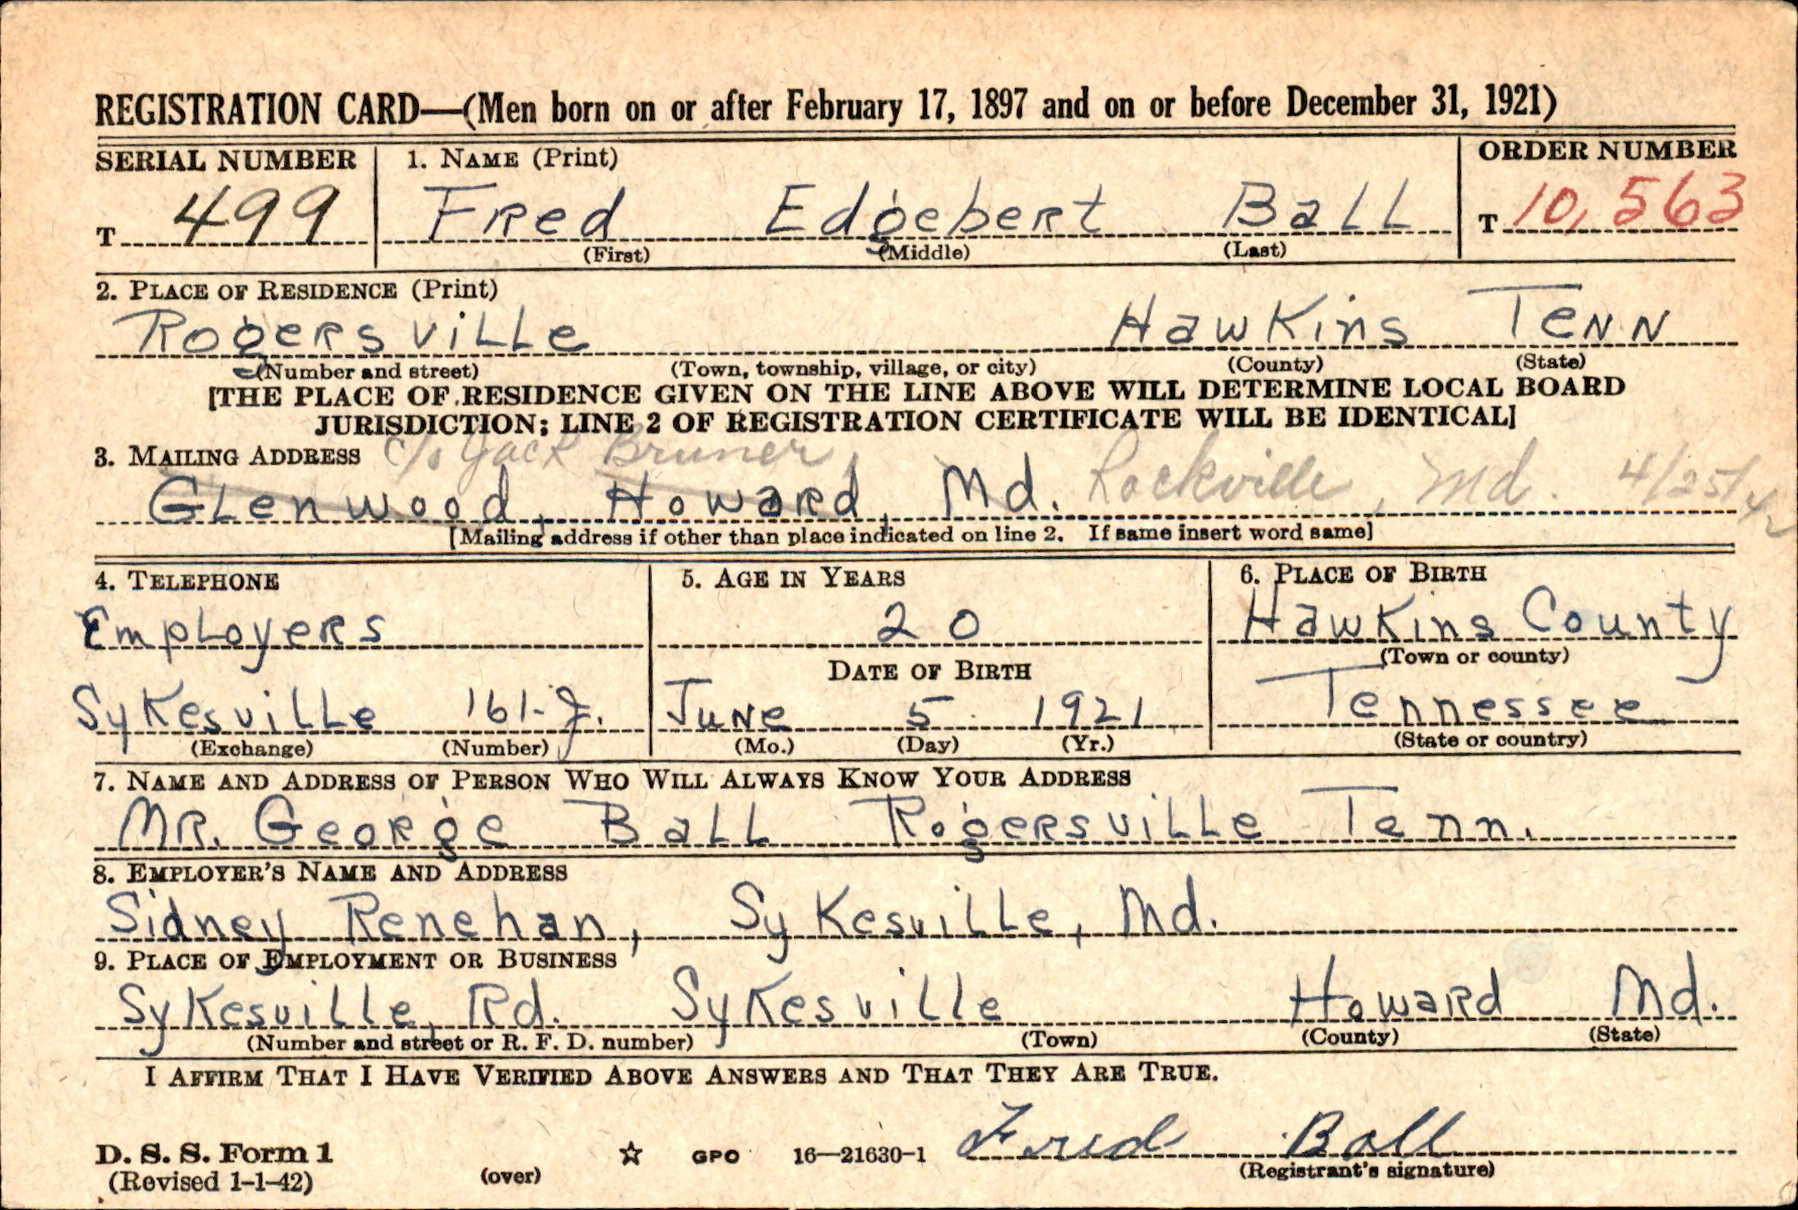 REGISTRATION CARD—(Men born on or after February 17, 1897 and on or before December 31, 1921)
SERIAL NUMBER
T 499
1. NAME (Print)
Fred Edgebert Ball
(First) (Middle) (Last)
ORDER NUMBER
T 10,563
2. PLACE OF RESIDENCE (Print)
Rogersville Hawkins Tenn
(Number and street) (Town, township, village, or city) (County) (State)
[THE PLACE OF RESIDENCE GIVEN ON THE LINE ABOVE WILL DETERMINE LOCAL BOARD
JURISDICTION; LINE 2 OF REGISTRATION CERTIFICATE WILL BE IDENTICAL]
3. MAILING ADDRESS c/o Jack Bruner
Glenwood, Howard, Md. Rockville, Md. 4/25/42
[Mailing address if other than place indicated on line 2. If same insert word same]
4. TELEPHONE
Employers
Sykesville 161-J.
(Exchange) (Number)
5. AGE IN YEARS
20
DATE OF BIRTH
June 5 1921
(Mo.) (Day) (Yr.)
6. PLACE OF BIRTH
Hawkins County
(Town or county)
Tennessee
(State or country)
7. NAME AND ADDRESS OF PERSON WHO WILL ALWAYS KNOW YOUR ADDRESS
Mr. George Ball Rogersville Tenn.
8. EMPLOYER'S NAME AND ADDRESS
Sidney Renehan, Sykesville, Md.
9. PLACE OF EMPLOYMENT OR BUSINESS
Sykesville, Rd. Sykesville Howard Md.
(Number and street or R. F. D. number) (Town) (County) (State)
I AFFIRM THAT I HAVE VERIFIED ABOVE ANSWERS AND THAT THEY ARE TRUE.
Fred Ball
D. S. S. Form 1
(Revised 1-1-42)
(over)
☆ GPO 16—21630-1
(Registrant's signature)